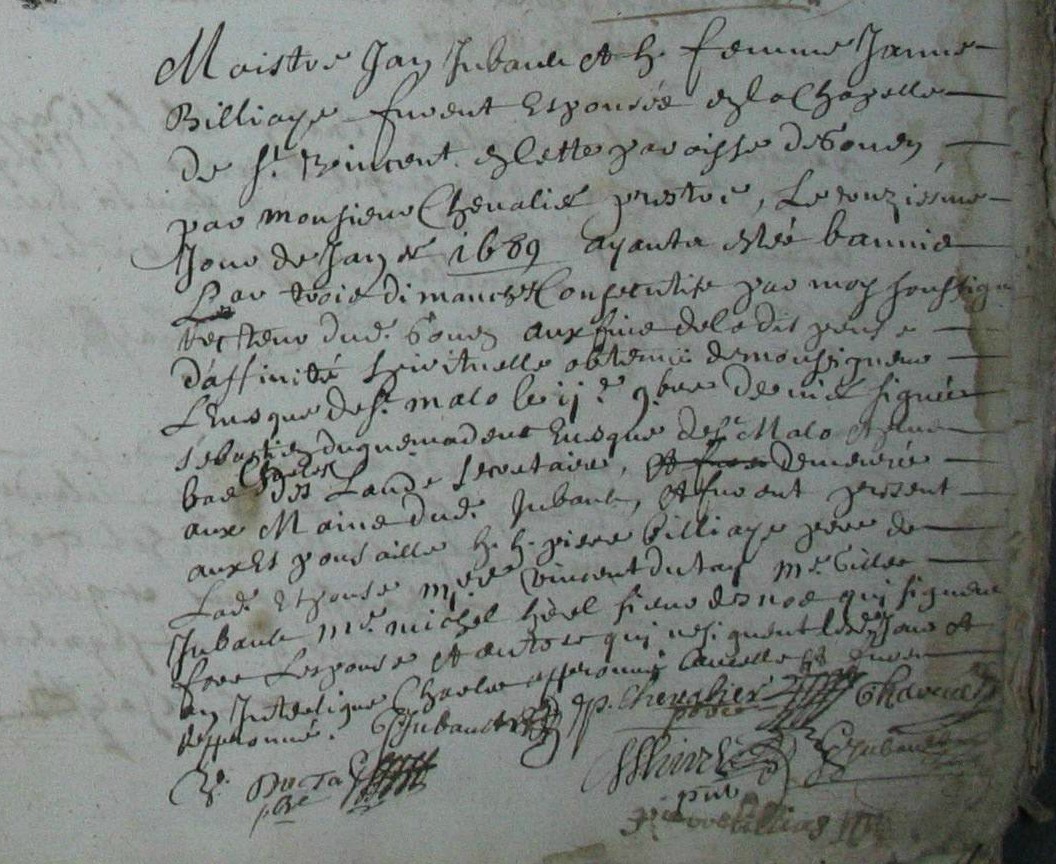 Maistre Jan Jubault et h. femme Janne
Billiaye furent Espousés en la Chapelle
de St. Vincent en cette paroisse de Goven
par monsieur Chevalier prestre, Le onziesme
Jour de Janer 1689 ayants estés bannis
Par trois dimanches Consecutifs par moy soussigne
recteur dud. Goven aux fins de la dispense
d'affinité spirituelle obtenue de monsigneur
L'Evesque de St. malo le ij.e 9.bre dernier signée
sébastien duguemadeuc Evesque de St. Malo et plus
bas des Lande secretaire, demeurée
aux Mains dud. Jubault, et furent present
aux Espousailles h. h. pierre Billiaye pere de
Lad. Espouse Vincent du tay Me. Gilles
Jubault Me. michel hevel sieur des noe qui signent
fors Lespouse et autres qui ne signent Jour et
an Interligne Charles approuvé Cancellé et furent
desaprouvé. G Jubault p. Chevalier
Du Tay Jubault
ptre